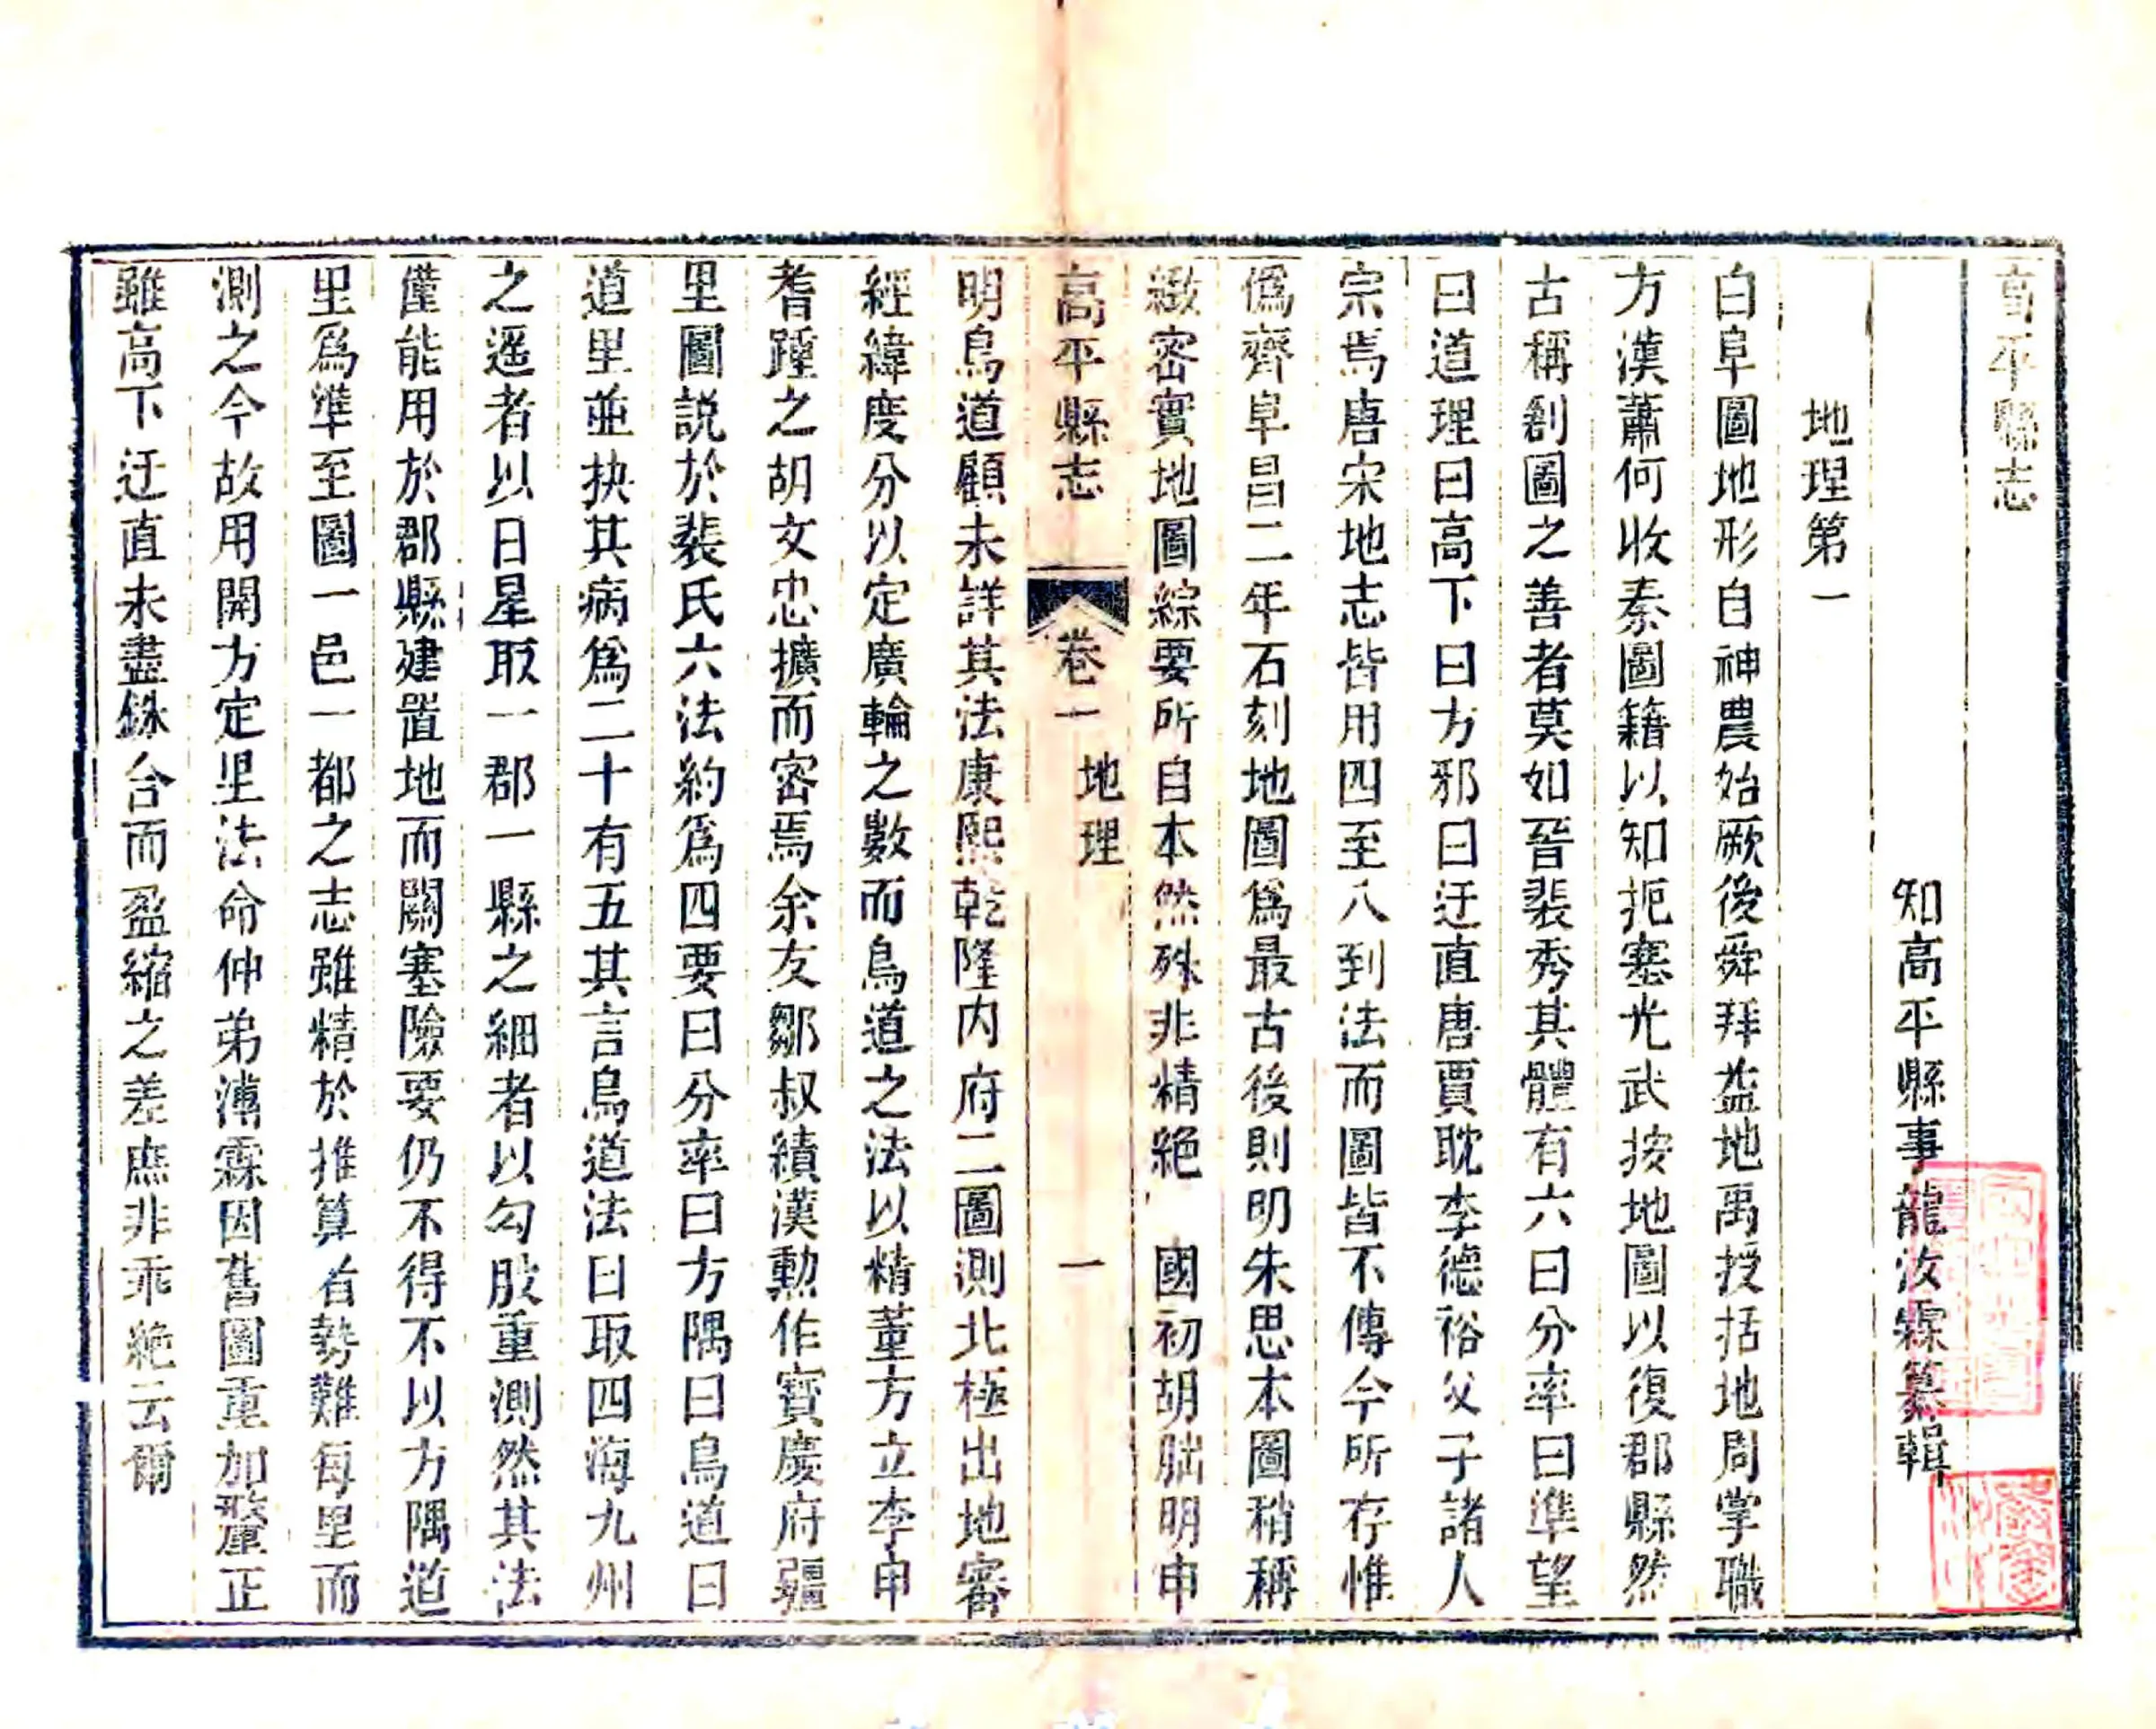 高平縣志
知高平縣事龍汝霖纂輯
地理第一
白阜圖地形自神農始厥後舜拜益地禹授括地周掌職
方漢蕭何收秦圖籍以知扼塞光武按地圖以復郡縣然
古稱創圖之善者莫如晉裴秀其體有六曰分率曰準望
曰道理曰高下曰方邪曰迂直唐賈耽李德裕父子諸人
宗焉唐宋地志皆用四至八到法而圖皆不傳今所存惟
僞齊阜昌二年石刻地圖爲最古後則明朱思本圖稍稱
緻密實地圖綜要所自本然殊非精絶 國初胡朏明申
高平縣志 卷一 地理 一
明鳥道顧未詳其法康熙乾隆内府二圖測北極出地審
經緯度分以定廣輪之數而鳥道之法以精董方立李申
耆踵之胡文忠擴而密焉余友鄒叔績漢勳作寶慶府疆
里圖説於裴氏六法約爲四要曰分率曰方隅曰鳥道曰
道里並抉其病爲二十有五其言鳥道法曰取四海九州
之遥者以日星取一郡一縣之細者以勾股重測然其法
僅能用於郡縣建置地而關塞險要仍不得不以方隅道
里爲準至圖一邑一都之志雖精於推算者勢難每里而
測之今故用開方定里法命仲弟溥霖因舊圖重加釐正
雖高下迂直未盡銖合而盈縮之差庶非乖絶云爾